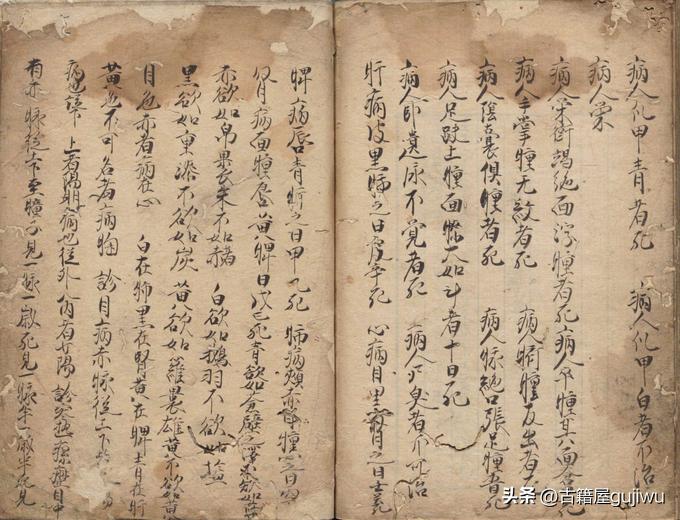 病人爪甲青者死　病人爪甲白者不治
病人荣
病人荣衛竭絶面浮腫者死病人卒腫其面蒼黑
病人手掌腫无紋者死　病人臍腫反出者死
病人陰囊俱腫者死　病人脉絶口張足腫者死
病人足趺上腫面腫大如斗者十日死
病人卧遺尿不覺者死　病人尸臭者不可治
肝病皮黑肺之日庚辛死　心病目黑腎之日壬癸
脾病唇青肝之日甲乙死　肺病頰赤目腫心之日
腎病面腫唇黄脾日戊己死青欲如蒼璧之澤不欲如
赤欲如帛裹朱不如赭　白欲如鵝羽不欲如塩
黑欲如重漆不欲如炭　黄欲如羅裹雄黄不欲如黄
目色赤者病在心　白在肺黑在腎黄在脾青在肝
黄色不可名者病胸　診目病赤脉從上下者
病從下上者陽明病也從外入内者少陽
有赤脉從上下至瞳子見一脉一歲死見一脉半一歲半死見